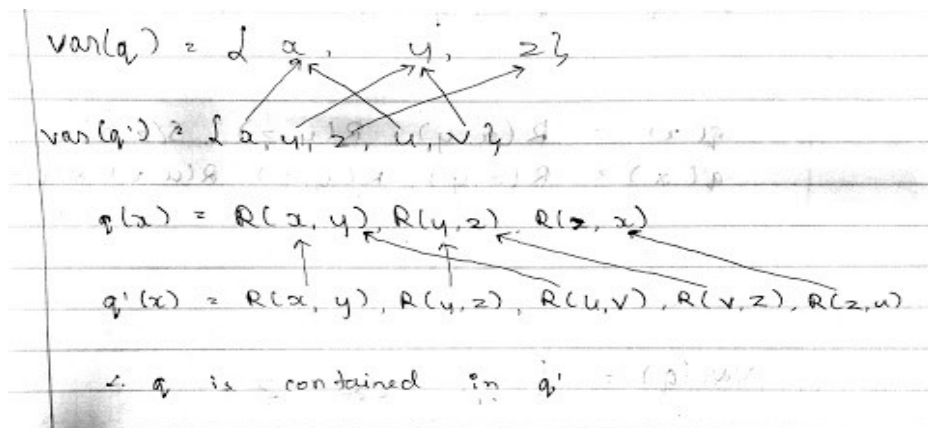 var(q) = { x, y, z}
var(q') = { x, y, z, u, v },
q(x) = R(x, y), R(y, z), R(z, x)
q'(x) = R(x, y), R(y, z), R(u, v), R(v, z), R(z, u)
∴ q is contained in q'